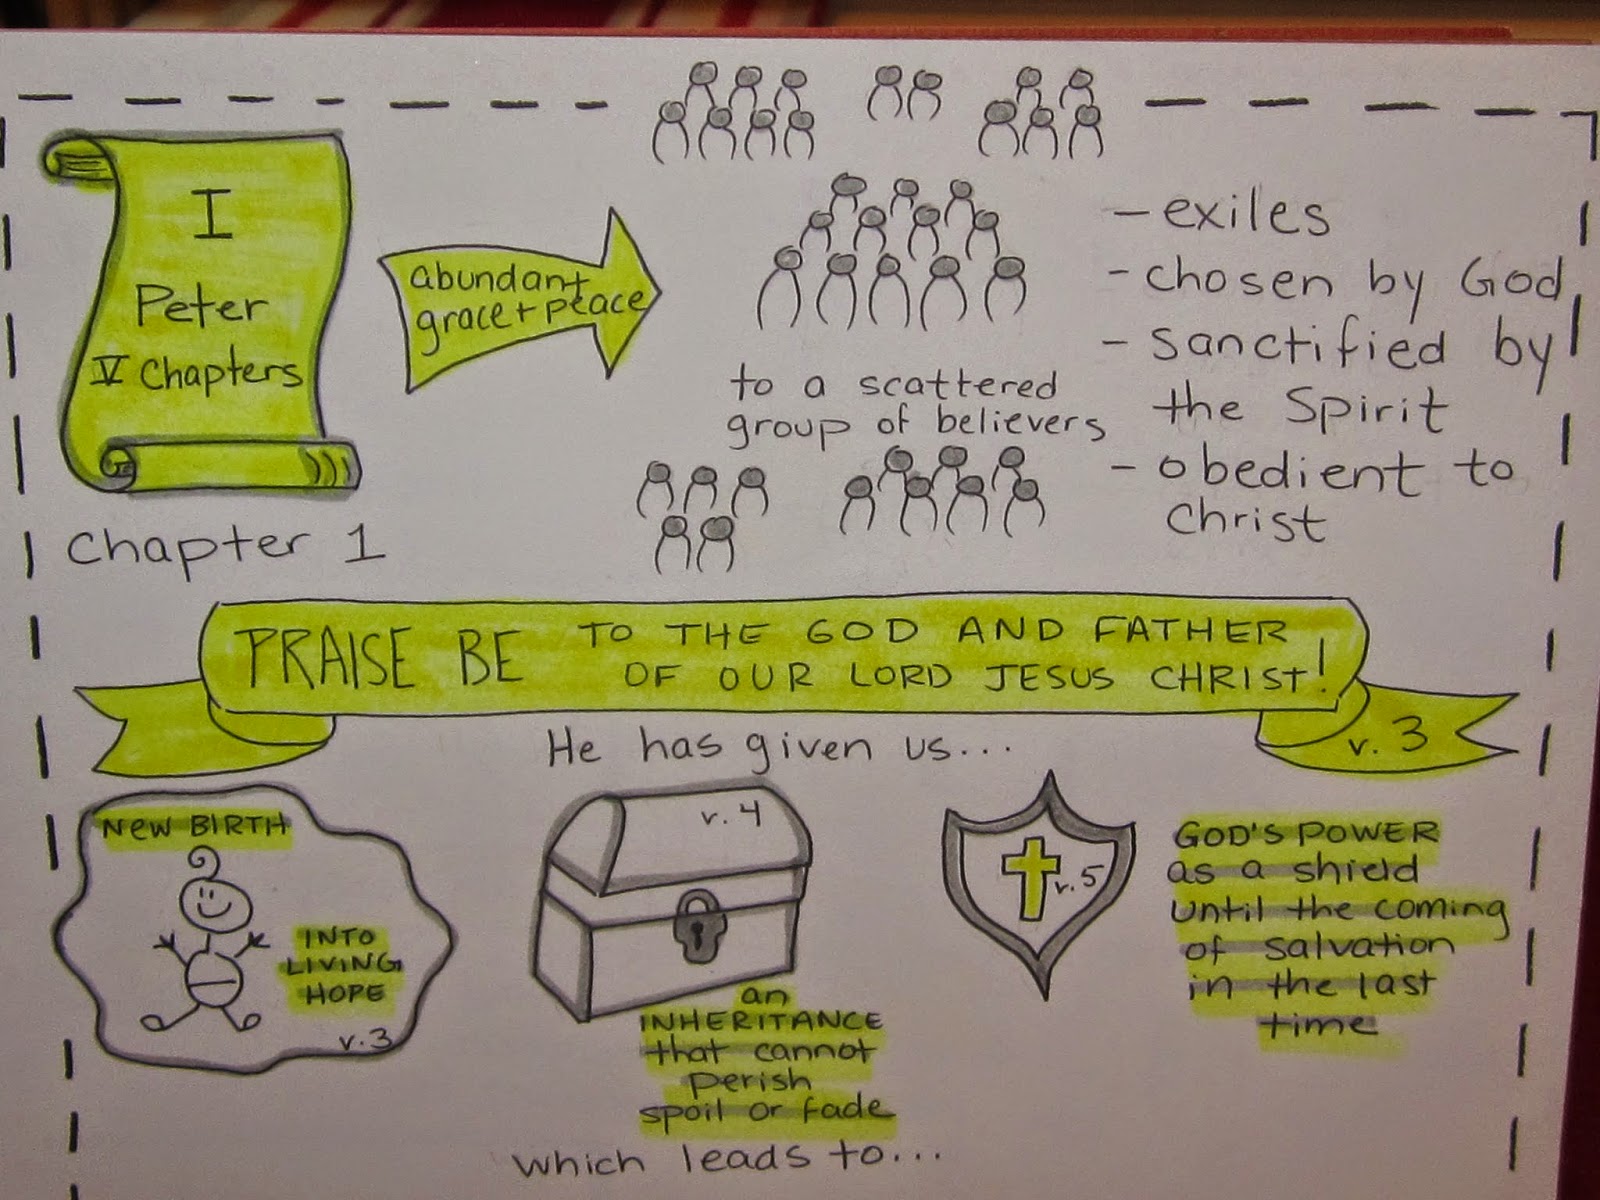 I
Peter
V Chapters
Chapter 1
abundant
grace + peace
to a scattered
group of believers
- exiles
- chosen by God
- sanctified by
the Spirit
- obedient to
Christ
PRAISE BE TO THE GOD AND FATHER
OF OUR LORD JESUS CHRIST!
v. 3
He has given us...
NEW BIRTH
INTO
LIVING
HOPE
v.3
v. 4
an
INHERITANCE
that cannot
perish
spoil or fade
v.5
GOD'S POWER
as a shield
until the coming
of salvation
in the last
time
which leads to...